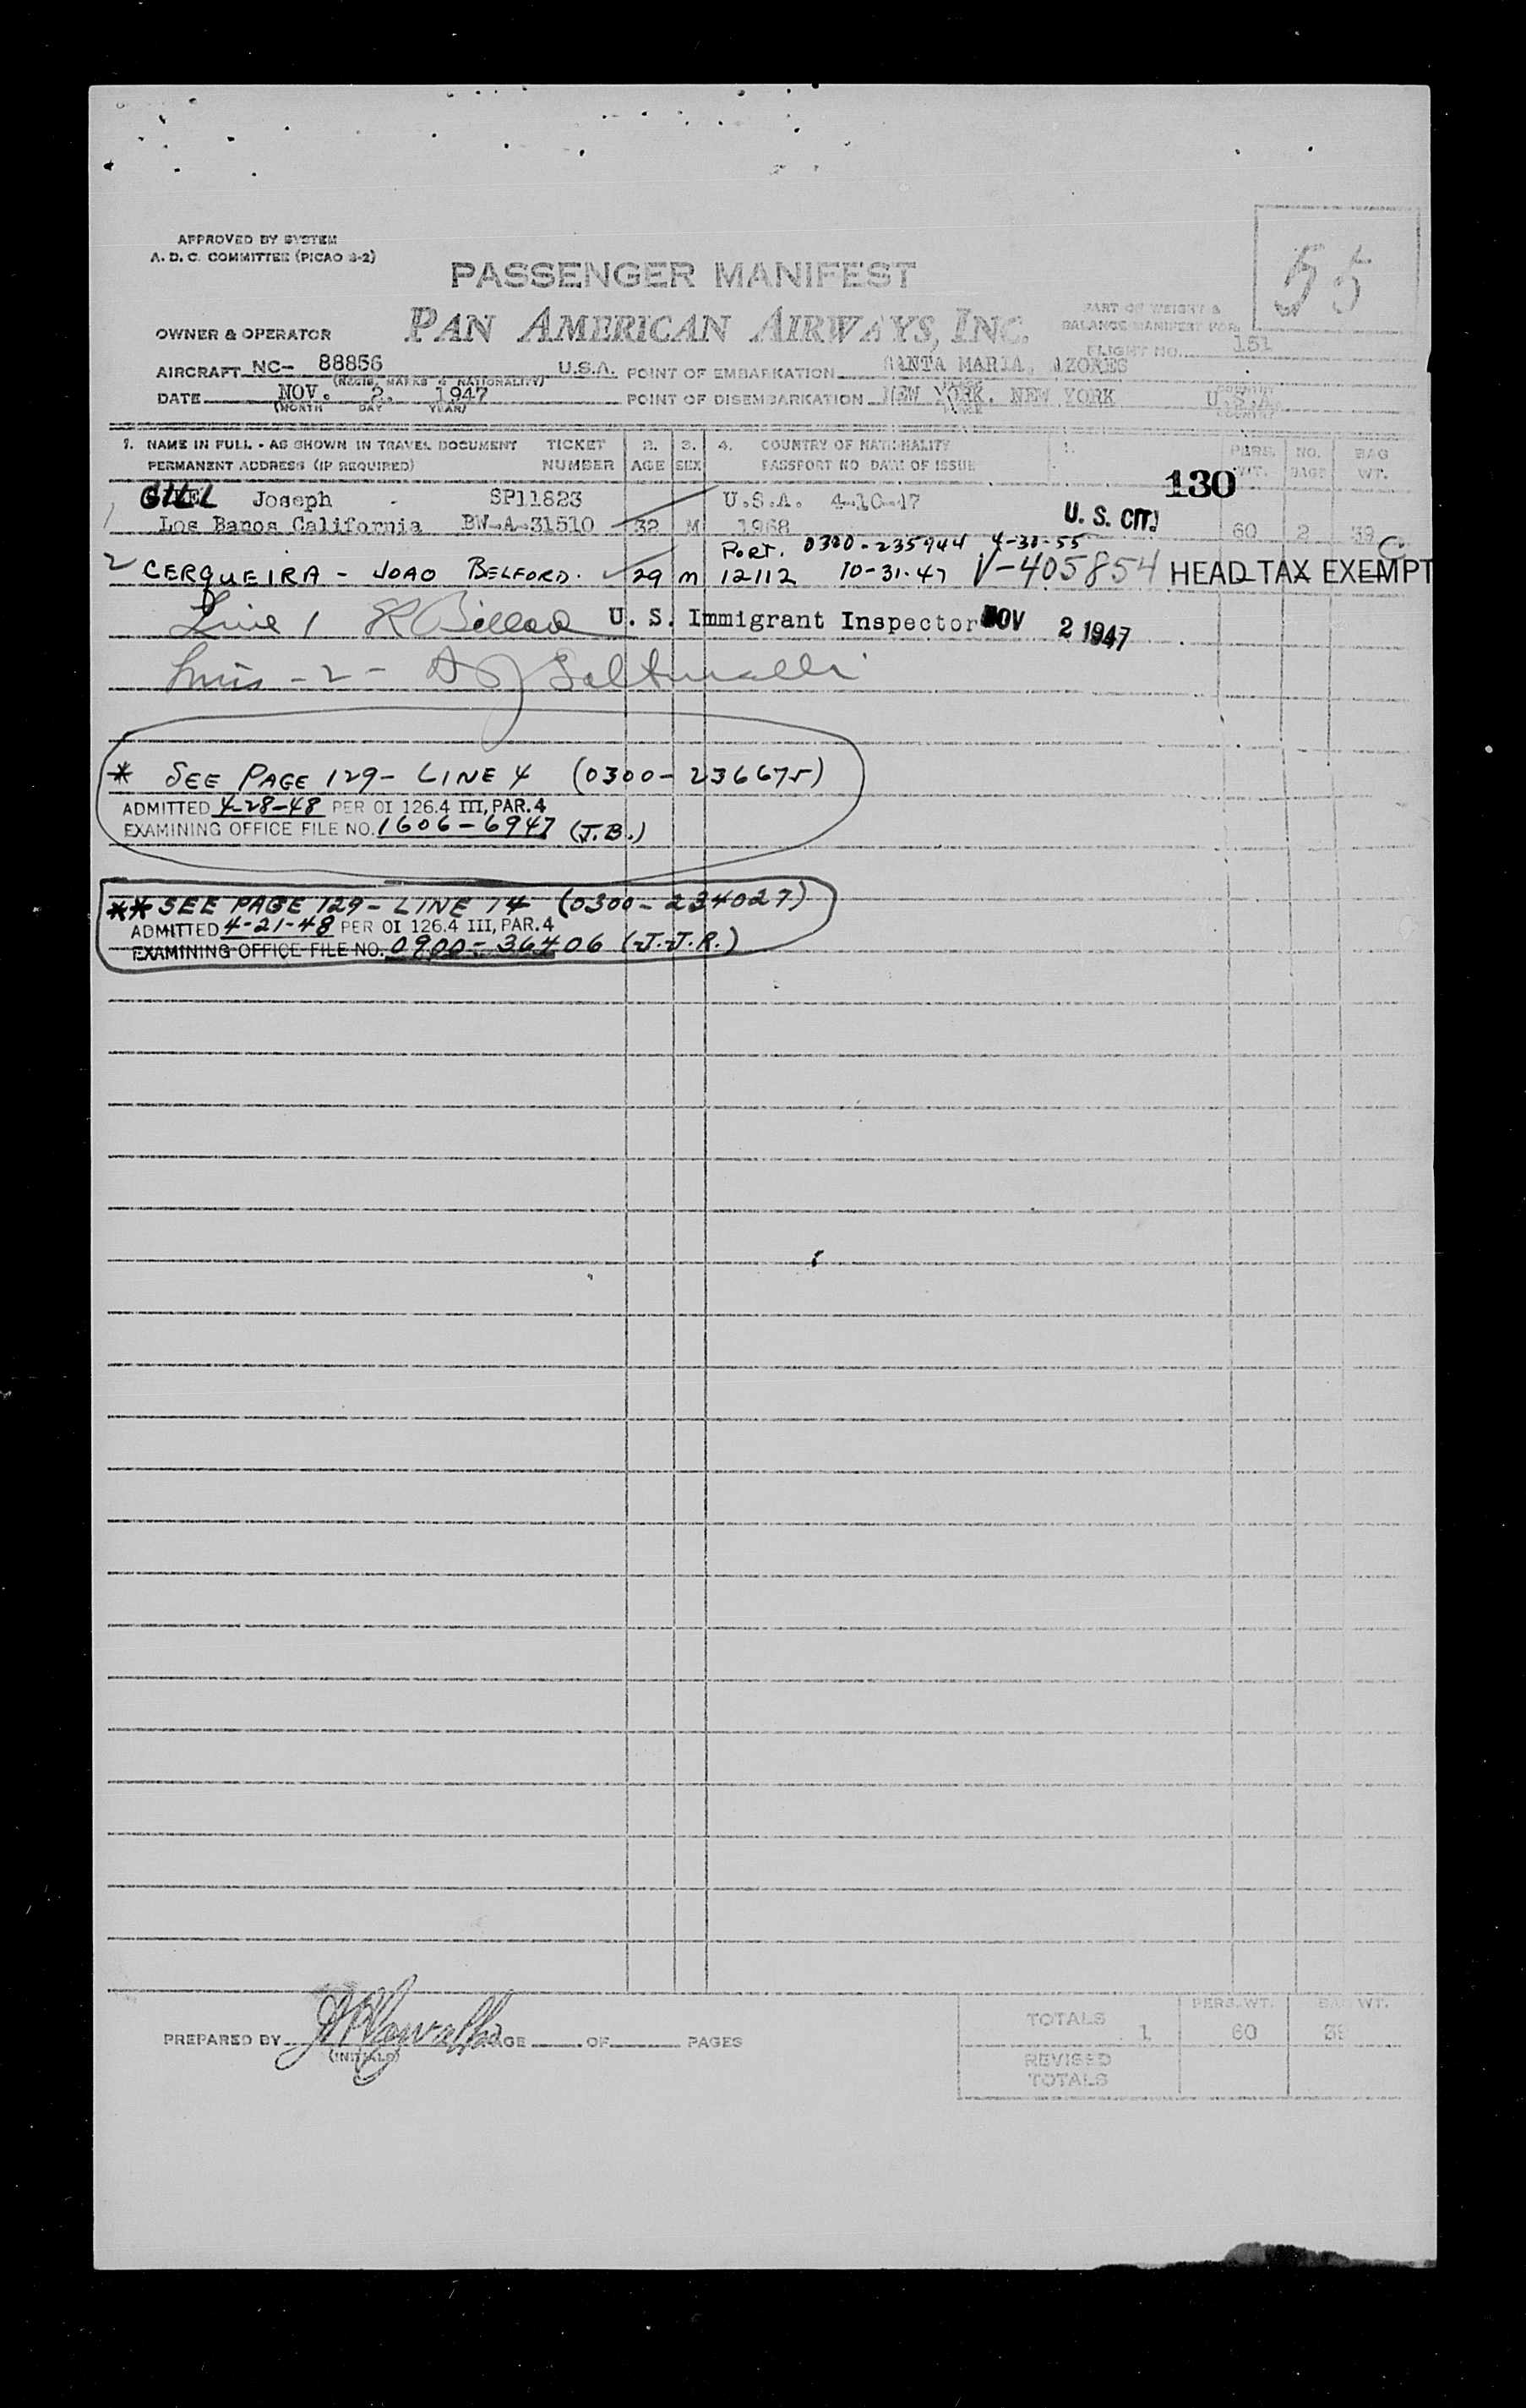 APPROVED BY SYSTEM
A. D. C. COMMITTEE (PICAO 3-2)
55
PASSENGER MANIFEST
PAN AMERICAN AIRWAYS, INC.
PART OF WEIGHT &
BALANCE MANIFEST FOR
FLIGHT NO. 151
OWNER & OPERATOR
AIRCRAFT NC- 88856 U.S.A. POINT OF EMBARKATION SANTA MARIA, AZORES
(REGIS. MARKS & NATIONALITY)
DATE NOV. 2. 1947 POINT OF DISEMBARKATION NEW YORK. NEW YORK U.S.A
(MONTH DAY YEAR) PLACE COUNTRY
1. NAME IN FULL - AS SHOWN IN TRAVEL DOCUMENT TICKET 2. 3. 4. COUNTRY OF NATIONALITY PERS. NO. BAG
PERMANENT ADDRESS (IF REQUIRED) NUMBER AGE SEX PASSPORT NO DATE OF ISSUE WT. BAGS WT.
130
GILL Joseph SP11823 U.S.A. 4-10-47
1 Los Banos California BW-A-31510 32 M 1968 U. S. CIT. 60 2 39
PORT. 0300-235944 4-30-55
2 CERQUEIRA - JOAO BELFORD. 29 M 12112 10-31-47 V-405854 HEAD TAX EXEMPT
Line 1 U. S. Immigrant Inspector NOV 2 1947
- 2 -
* SEE PAGE 129 - LINE 4 (0300-236675)
ADMITTED 4-28-48 PER OI 126.4 III, PAR. 4
EXAMINING OFFICE FILE NO. 1606-6947 (J.B.)
** SEE PAGE 129 - LINE 14 (0300-234027)
ADMITTED 4-21-48 PER OI 126.4 III, PAR. 4
EXAMINING OFFICE FILE NO. 0900-36406 (J.J.R.)
PERS. WT. BAG WT.
TOTALS 1 60 39
PREPARED BY PAGE OF PAGES
(INITIALS)
REVISED
TOTALS